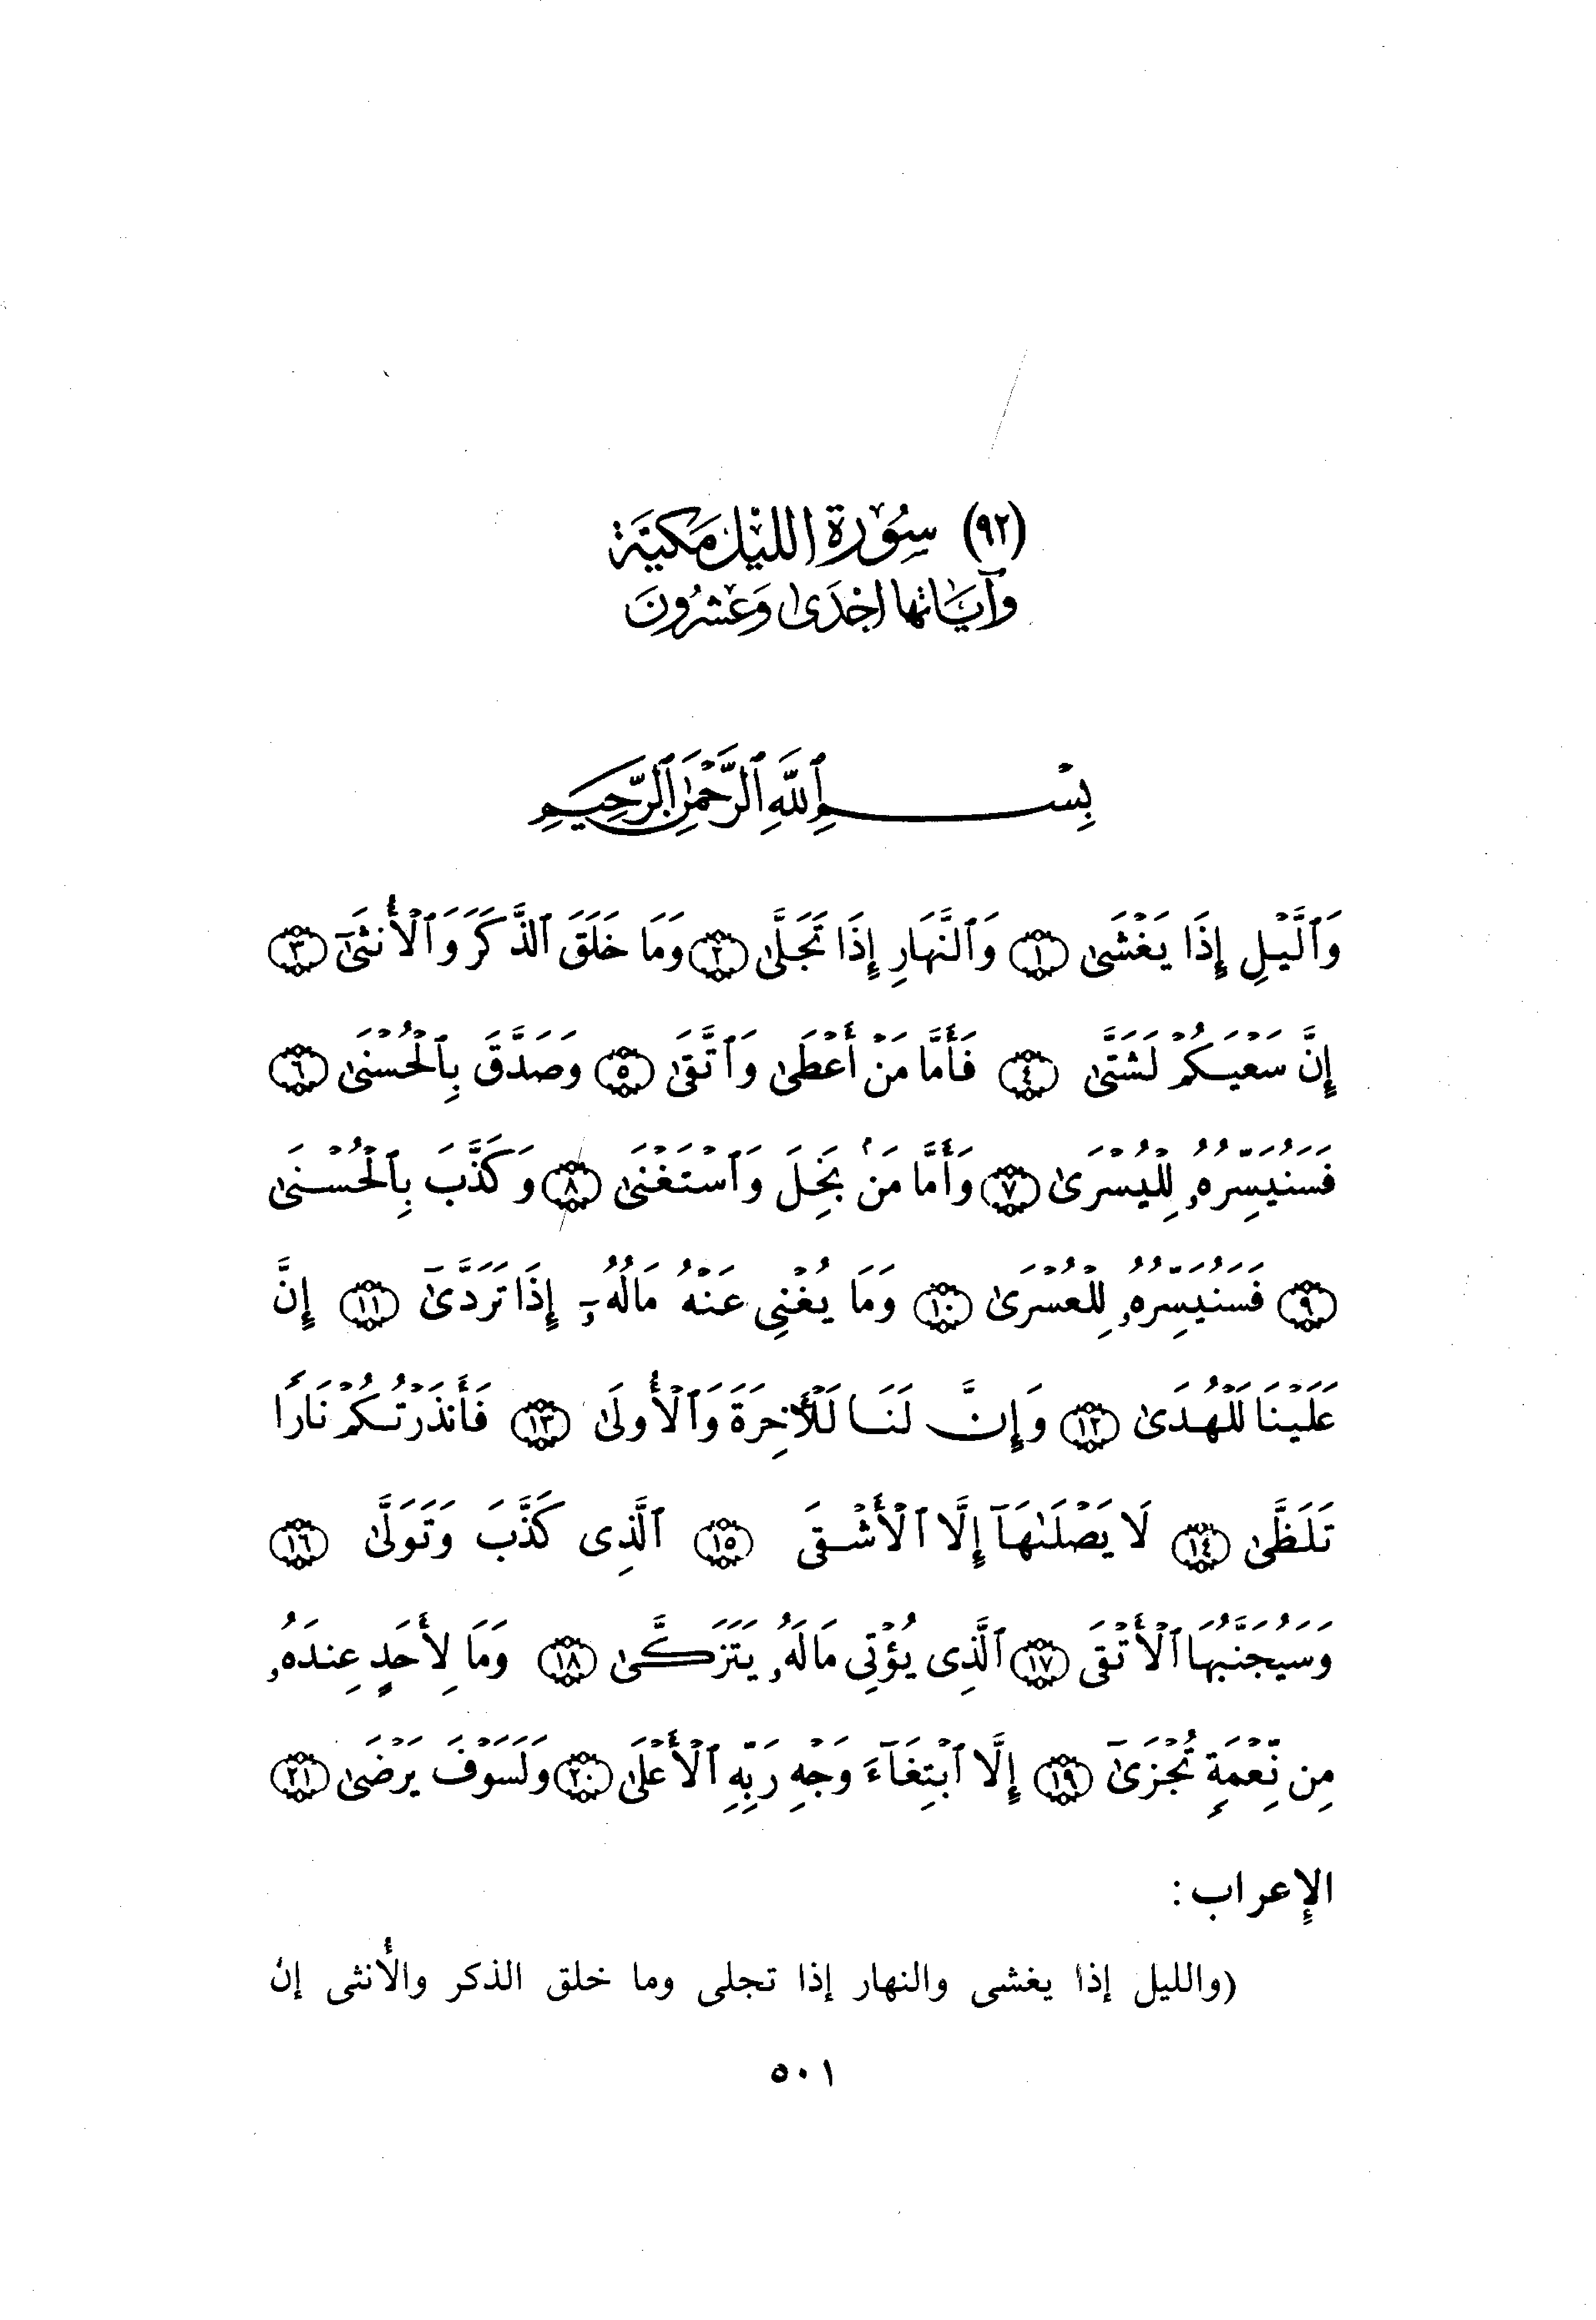 (٩٢) سُوْرَة الليْل مَكيَّة
وآيَاتها إحْدَى وَعشرُونَ
بِسْمِ ٱللَّهِ ٱلرَّحْمَٰنِ ٱلرَّحِيمِ
وَٱلَّيْلِ إِذَا يَغْشَىٰ ١ وَٱلنَّهَارِ إِذَا تَجَلَّىٰ ٢ وَمَا خَلَقَ ٱلذَّكَرَ وَٱلْأُنثَىٰٓ ٣
إِنَّ سَعْيَكُمْ لَشَتَّىٰ ٤ فَأَمَّا مَنْ أَعْطَىٰ وَٱتَّقَىٰ ٥ وَصَدَّقَ بِٱلْحُسْنَىٰ ٦
فَسَنُيَسِّرُهُۥ لِلْيُسْرَىٰ ٧ وَأَمَّا مَنۢ بَخِلَ وَٱسْتَغْنَىٰ ٨ وَكَذَّبَ بِٱلْحُسْنَىٰ
٩ فَسَنُيَسِّرُهُۥ لِلْعُسْرَىٰ ١٠ وَمَا يُغْنِى عَنْهُ مَالُهُۥٓ إِذَا تَرَدَّىٰٓ ١١ إِنَّ
عَلَيْنَا لَلْهُدَىٰ ١٢ وَإِنَّ لَنَا لَلْأَخِرَةَ وَٱلْأُولَىٰ ١٣ فَأَنذَرْتُكُمْ نَارًا
تَلَظَّىٰ ١٤ لَا يَصْلَىٰهَآ إِلَّا ٱلْأَشْقَى ١٥ ٱلَّذِى كَذَّبَ وَتَوَلَّىٰ ١٦
وَسَيُجَنَّبُهَا ٱلْأَتْقَى ١٧ ٱلَّذِى يُؤْتِى مَالَهُۥ يَتَزَكَّىٰ ١٨ وَمَا لِأَحَدٍ عِندَهُۥ
مِن نِّعْمَةٍ تُجْزَىٰٓ ١٩ إِلَّا ٱبْتِغَآءَ وَجْهِ رَبِّهِ ٱلْأَعْلَىٰ ٢٠ وَلَسَوْفَ يَرْضَىٰ ٢١
الإعراب :
(والليل إذا يغشى والنهار إذا تجلى وما خلق الذكر والأنثى إن
٥٠١